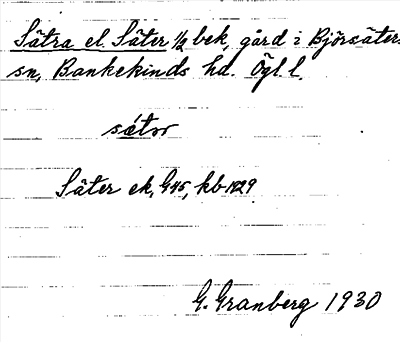 Sätra el. Säter 1/2 bek, gård i Björsäters
sn, Bankekinds hd. Ögl. l.
sǽtər
Säter ek, G45, kb 1929
G. Granberg 1930